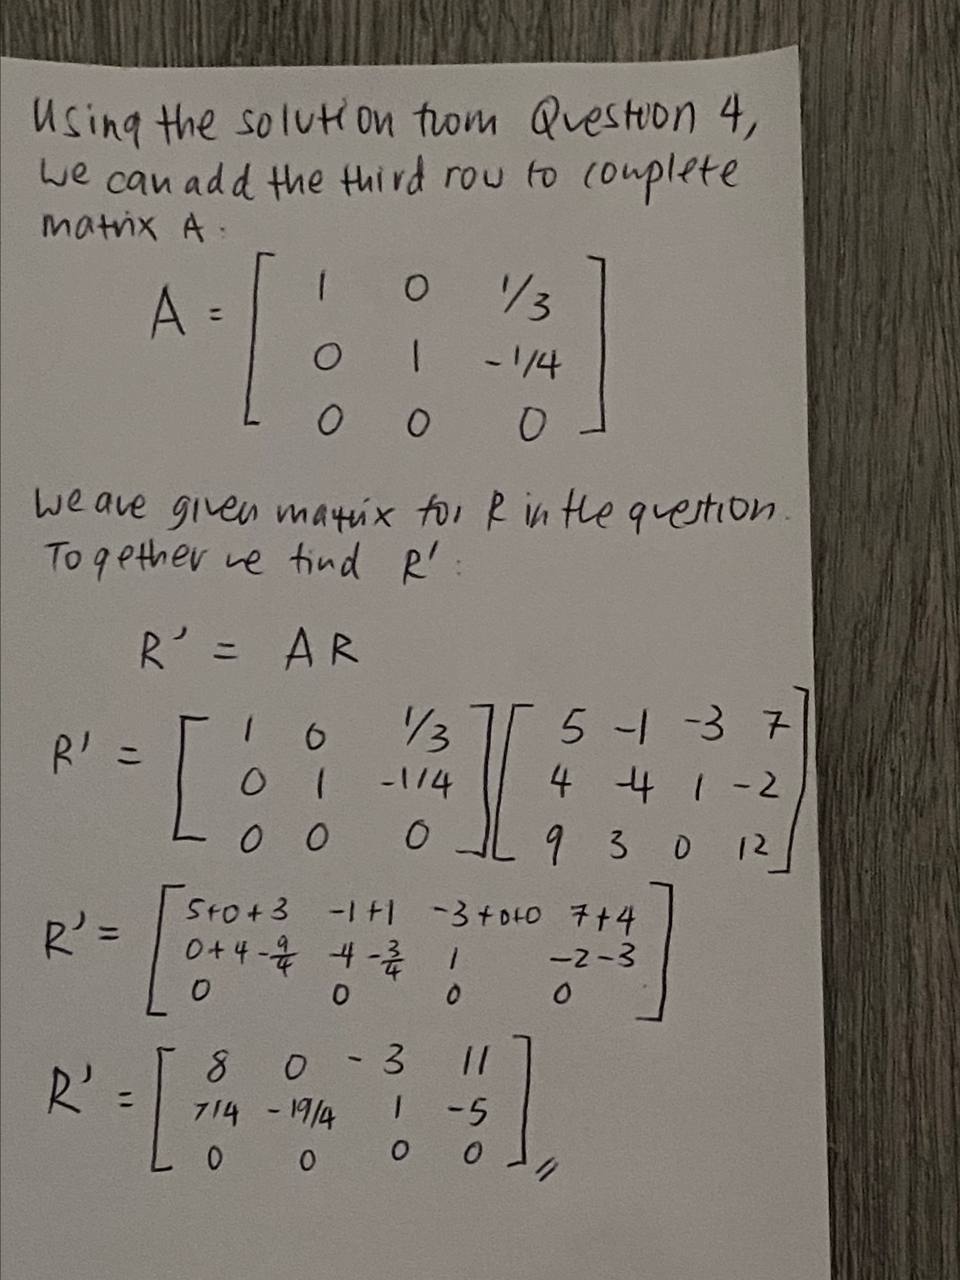 Using the solution from Question 4,
we can add the third row to complete
matrix A:
A = [ 1 0 1/3
0 1 -1/4
0 0 0 ]
We are given matrix for R in the question.
Together we find R' :
R' = AR
R' = [ 1 0 1/3 ] [ 5 -1 -3 7 ]
0 1 -1/4 4 -4 1 -2
0 0 0 9 3 0 12
R' = [ 5+0+3 -1+1 -3+0+0 7+4 ]
0+4-9/4 -4-3/4 1 -2-3
0 0 0 0
R' = [ 8 0 -3 11 ]
7/4 -19/4 1 -5
0 0 0 0 //